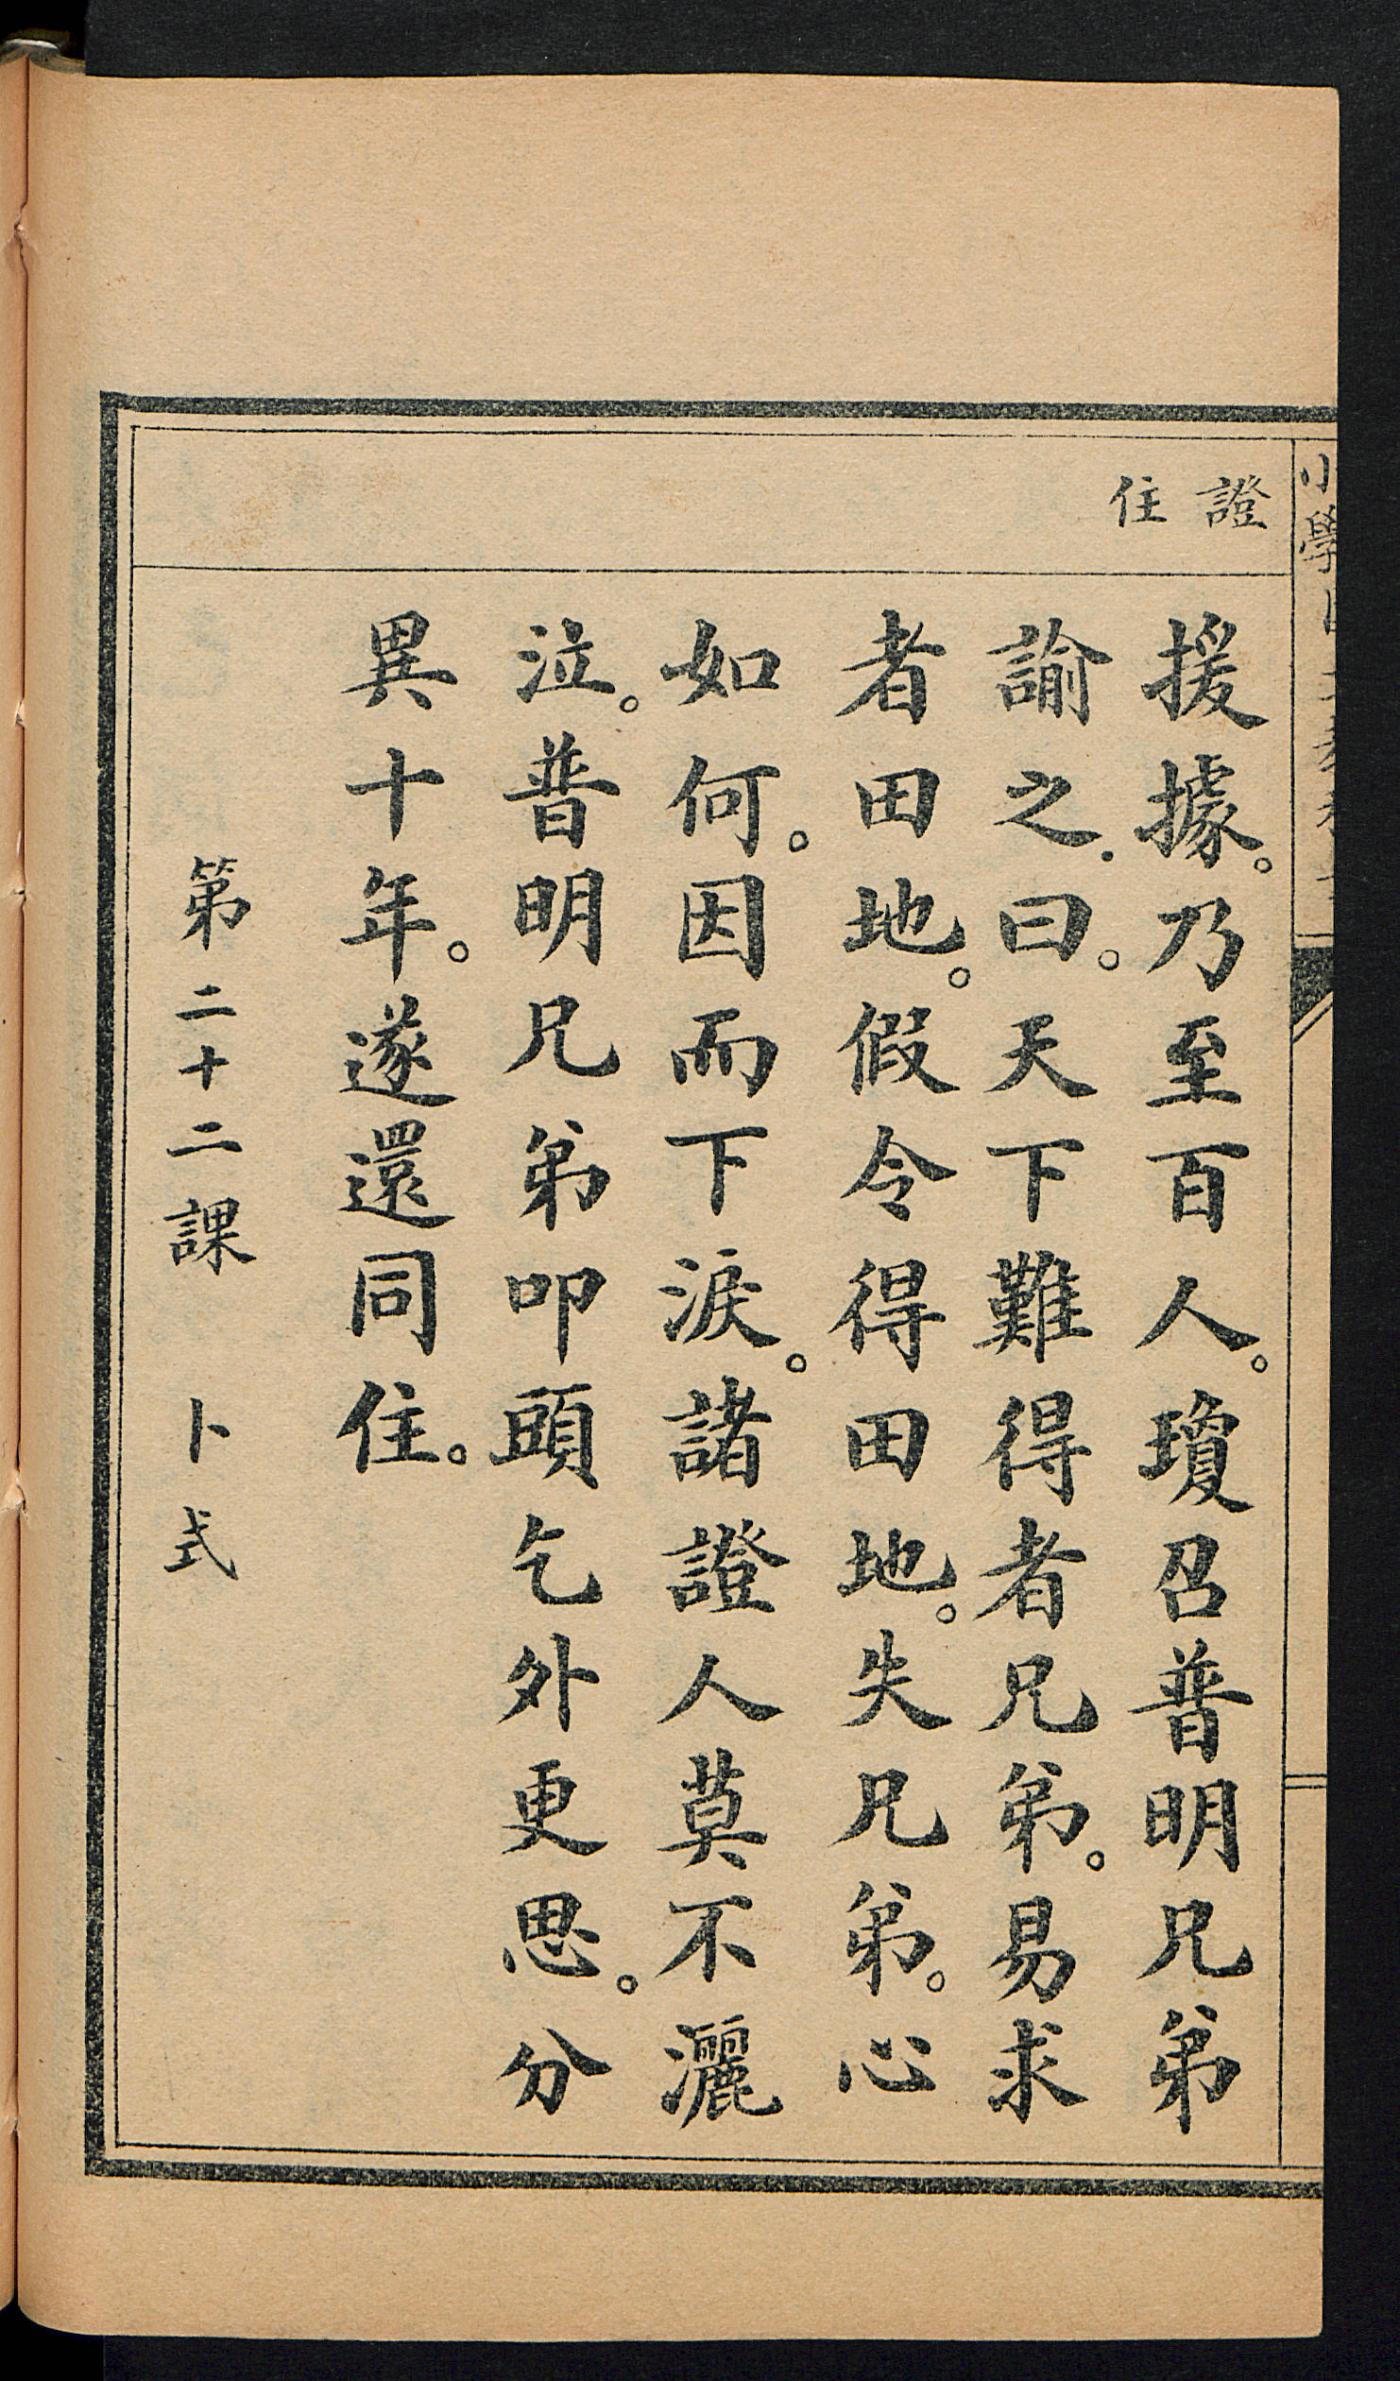 小學
證
住
援據。乃至百人。瓊召普明兄弟
諭之.曰。天下難得者兄弟。易求
者田地。假令得田地。失兄弟。心
如何。因而下淚。諸證人莫不灑
泣。普明兄弟叩頭乞外更思。分
異十年。遂還同住。
第二十二課　卜式